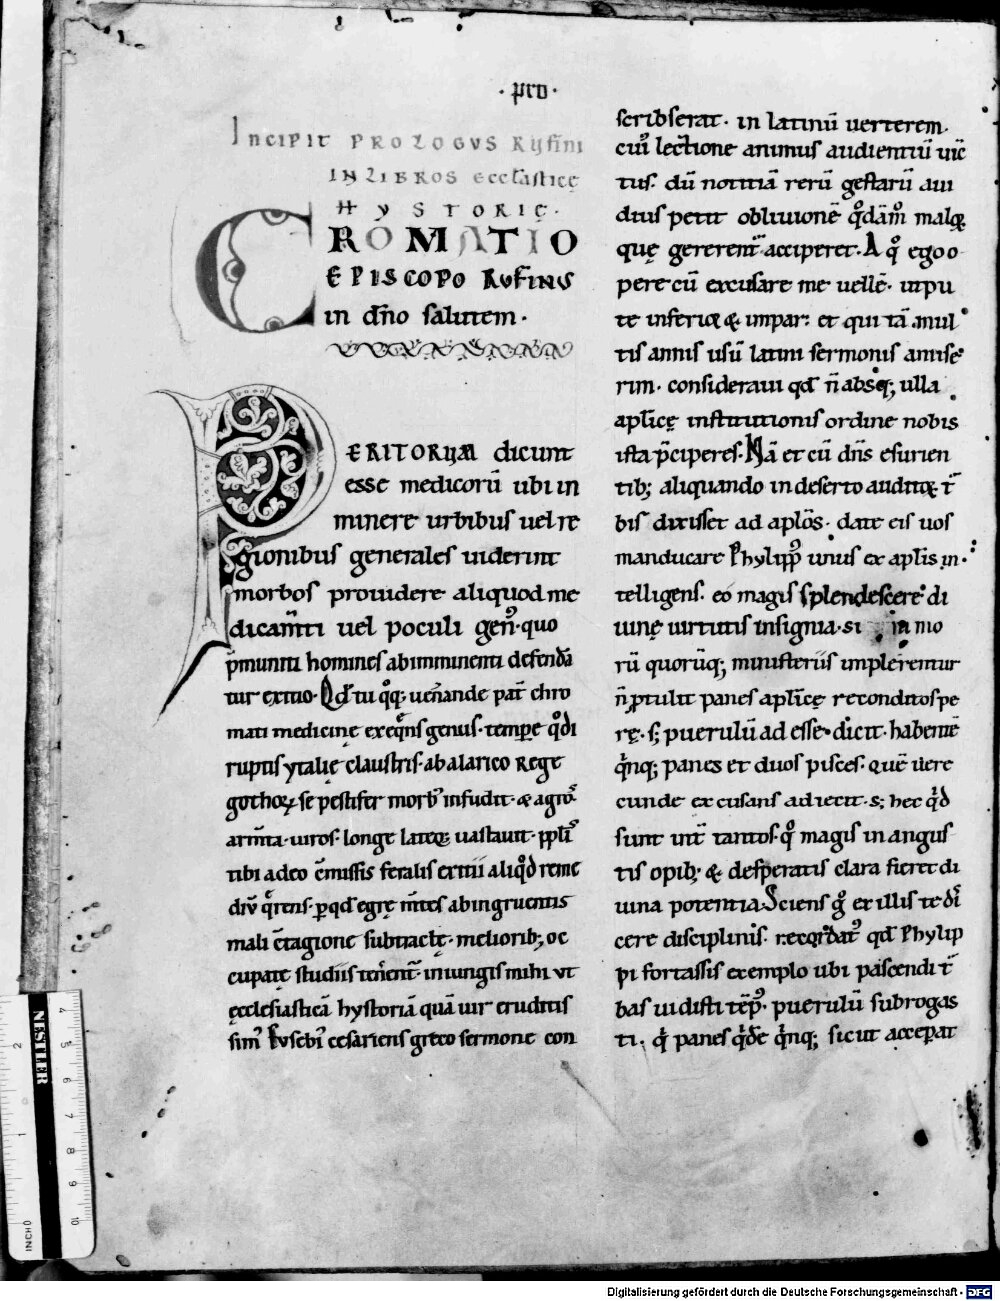 · pro ·
INCIPIT PROLOGVS RUfini
IN LIBROS ecclasticę
HYSTORIĘ.
CROMATIO
EPISCOPO RUFINUS
in dño salutem·
PERITORUM dicunt
esse medicorū ubi in
minere urbibus uel re
gionibus generales uiderint
morbos prouidere aliquod me
dicam̄ti uel poculi gen᾿· quo
p̄muniti homines ab imminenti defendā
tur exitio· Qđ tu q͛q; uen̄ande pat̄ chro
mati medicinę exeq̄ns genus· tempe q͛ di
ruptis ytalię claustris· ab alarico rege
gothoꝝ se pestifer morb᾿ infudit· & agro᷒
arm̄ta· uiros· longe lateq; uastauit· ppl̄i
tibi a deo c̄missis feralis exitii aliq͛d reme
diū q̄rens· ꝑ qđ egrę m̄tes ab ingruentis
mali c̄tagione subtractę· meliorib; oc
cupatę studiis ten̄ent᷑· iniungis mihi ut
ęcclesiasticā hystoriā quā uir eruditis
sim᾿ Eusebi᾿ cesariens greco sermone con
scribserat· in latinū uerterem·
cui᾿ lectione animus audientiū uic̄
tus· dū notitiā rerū gestarū aui
dius petit obliuionē q͛dām͛ maloꝝ
quę gererent᷑ acciperet· A q͛ ego o
pere cū excusare me uellē· utpu
te inferior & impar· et qui tā mul
tis annis usū latini sermonis amise
rim· consideraui qđ n̄ absq; ulla
apl̄icę institutionis ordine nobis
ista p̄ciperes· Nā et cū dn̄s esurien
tib; aliquando in deserto auditoꝝ t᷑
bis dixisset ad aplōs· date eis uos
manducare Phylipp᾿ unus ex aplis in·
telligens· eo magis splendescere di
uinę uirtutis insignia· si in mo
rū quorūq; ministeriis implerentur
n̄ ꝓtulit panes apl̄icę reconditos pe
rę· s; puerulū adesse dicit· habentē
q̄nq; panes et duos pisces· quē uere
cunde excusans adiecit· s; hec q͛d
sunt int̄ tantos· q͛ magis in angus
tis opib; & desperatis clara fieret di
uina potentia· Sciens g͛ ex illis te dī
cere disciplinis· recordat᾿ qđ Phylip
pi fortassis exemplo ubi pascendi t᷑
bas uidisti tēp᾿· puerulū subrogas
ti· q͛ panes q͛de q̄nq; sicut acceperat
NESTLER
INCHO
1
2
4
5
6
7
8
9
10
Digitalisierung gefördert durch die Deutsche Forschungsgemeinschaft - DFG